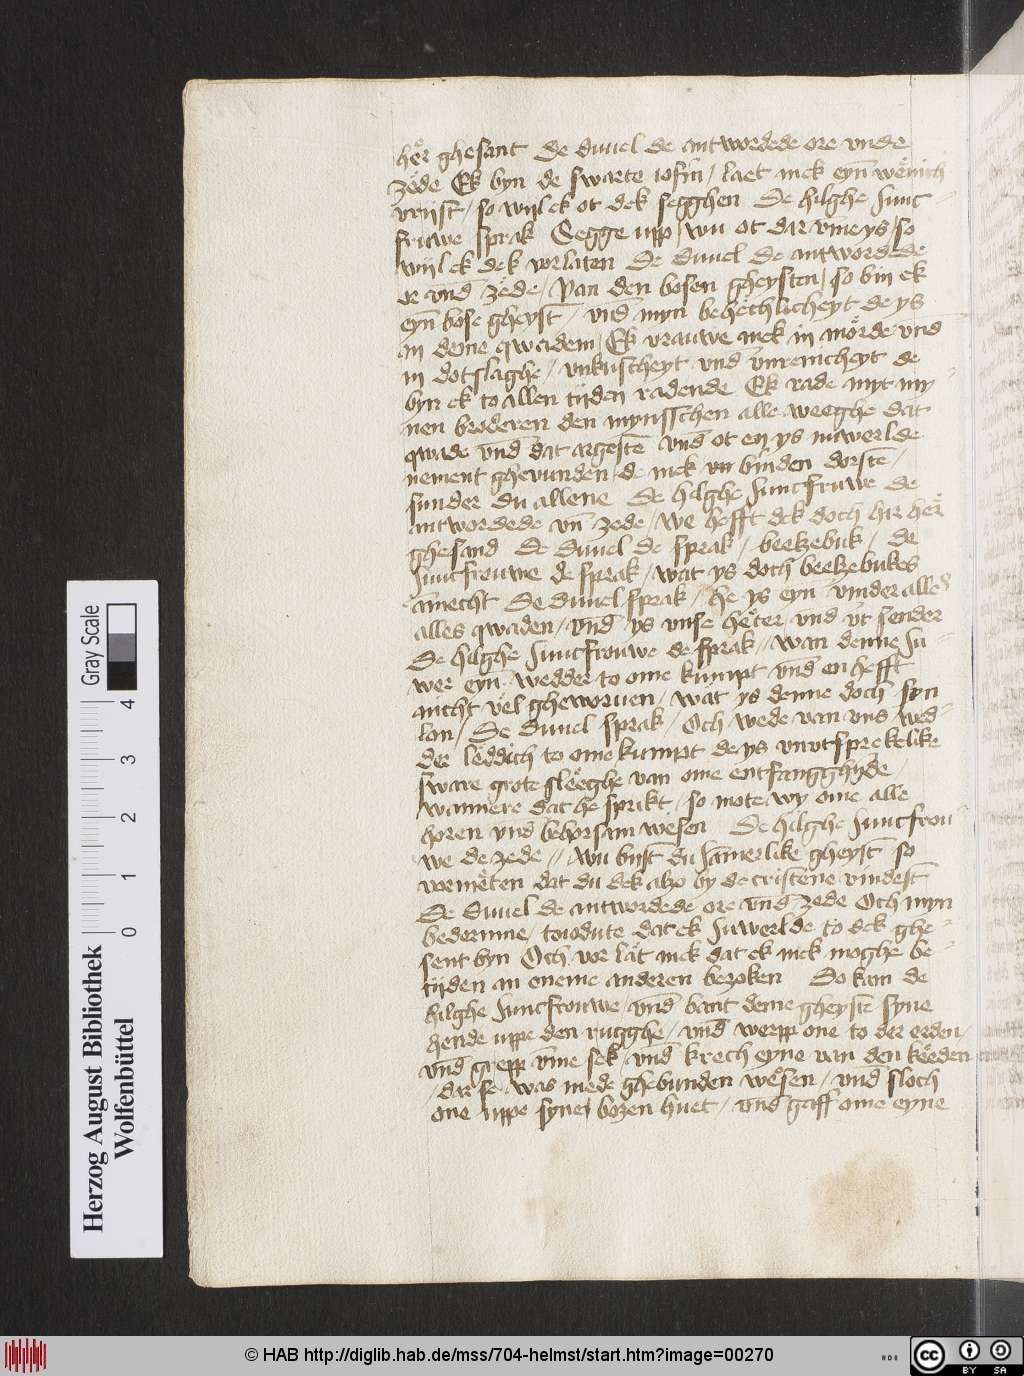 her ghesant De duuel de antwordede ore vnde
zede Ek byn de swarte iosin / laet mek eyn wenich
vrijst / so wijl ek ot dek segghen De hilghe Junc-
fruwe sprak Segge upp / wu ot dar vmme ys / so
wijl ek dek vorlaten De duuel de antwordede
er vnd zede / Van den bosen gheysten / so bin ek
eyn bose gheyst / vnd myn behechlicheyt de ys
in deme qwadem / Ek vrauwe mek in morde vnd
in dotslaghe / vnkuscheyt vnd vnreinicheyt de
byn ek to allen tijden radende Ek rade myt my-
nen broderen den mynsschen alle weeghe dat
qwade vnd dat argeste vnd ot en ys niwerlde
nement ghevunden / de mek vn binden dorste /
sunder du allene De hilghe Juncfruwe de
antwordede vn zede / we hefft dek doch hir her
ghesand De duuel de sprak / beelzebuk / De
Juncfrouwe de sprak / wat ys doch beelzebukes
ammecht De duuel sprak / he ys eyn vinder alles
alles qwaden / vnd ys vnse heter vnd vt sender
De hilghe Juncfrouwe de sprak // wan denne Ju-
wer eyn wedder to ome kumpt vnd en hefft
nicht vel gheworuen / wat ys denne doch syn
lon / De duuel sprak / Och wede van vns wed-
der leddich to ome kumpt de ys vnvtsprekelike
sware grote sleeghe van ome entfangghyde /
wannere dat he sprikt / so mote wy ome alle
horen vnd behorsam wesen De hilghe Juncfrou
we de zede // Wu bust du Jamerlike gheyst so
vormeten dat du dek alzo by de cristene vindest
De duuel de antwordede ore vnd zede Och myn
bedorinne / toiodute dat ek Juwerlde to dek ghe-
sent byn Och vor lat mek dat ek mek moghe be-
tijden an eneme anderen bezoken Do kam de
hilghe Juncfrouwe / vnd bant deme gheyste syne
hende uppe den rugghe / vnd werpp one to der erden /
vnd grepp vmme sek / vnd krech eyne van den keeden
/ dar se was mede ghebunden wesen / vnd sloch
one uppe synen bozen huet / vnd gaff ome eyne
Gray Scale
4
3
2
1
0
Herzog August Bibliothek
Wolfenbüttel
© HAB http://diglib.hab.de/mss/704-helmst/start.htm?image=00270
cc BY SA